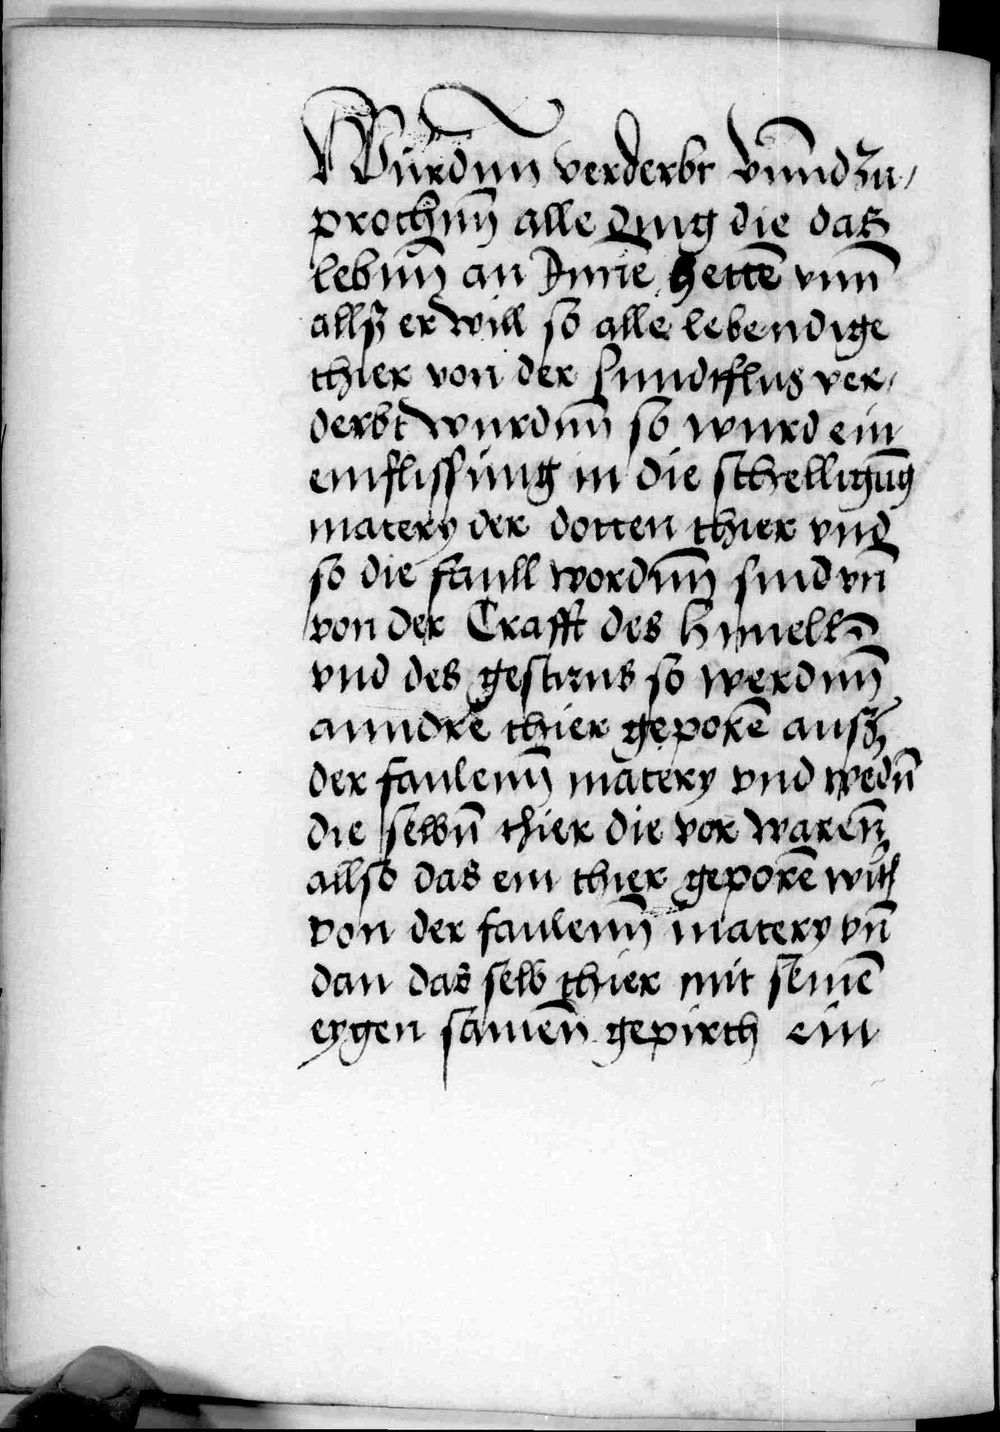 Wurdnn verderbt vnnd zu/
prochnn̄ alle ding die das
lebnn̄ an Jnnē hettē vnn̄
allß er will so alle lebendige
thier von der sundtflus ver/
derbt wurdnn̄ so wurd ein
einflissung in die schelligūg
matery der dotten thier vnd
so die faull wordnn̄ sind vn̄
von der Crafft des himells
vnd des gestirns so werdnn̄
anndre thier geporē auß
der faulenn̄ matery vnd wedn̄
die selbn̄ thier die vor warēn
allso das ein thier geporē wirt
von der faulenn̄ matery vn̄
dan das selb thier mit seinē
eygen samēn gepirth ein